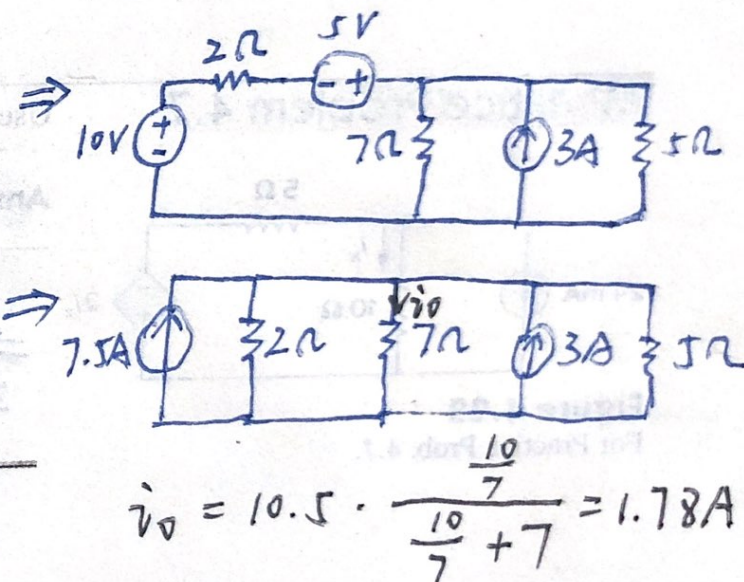 5V
2Ω
- +
⇒
10V + -
7Ω 3A 5Ω
⇒
i₀
7.5A 2Ω 7Ω 3A 5Ω
i₀ = 10.5 · (10/7)/(10/7 + 7) = 1.78A